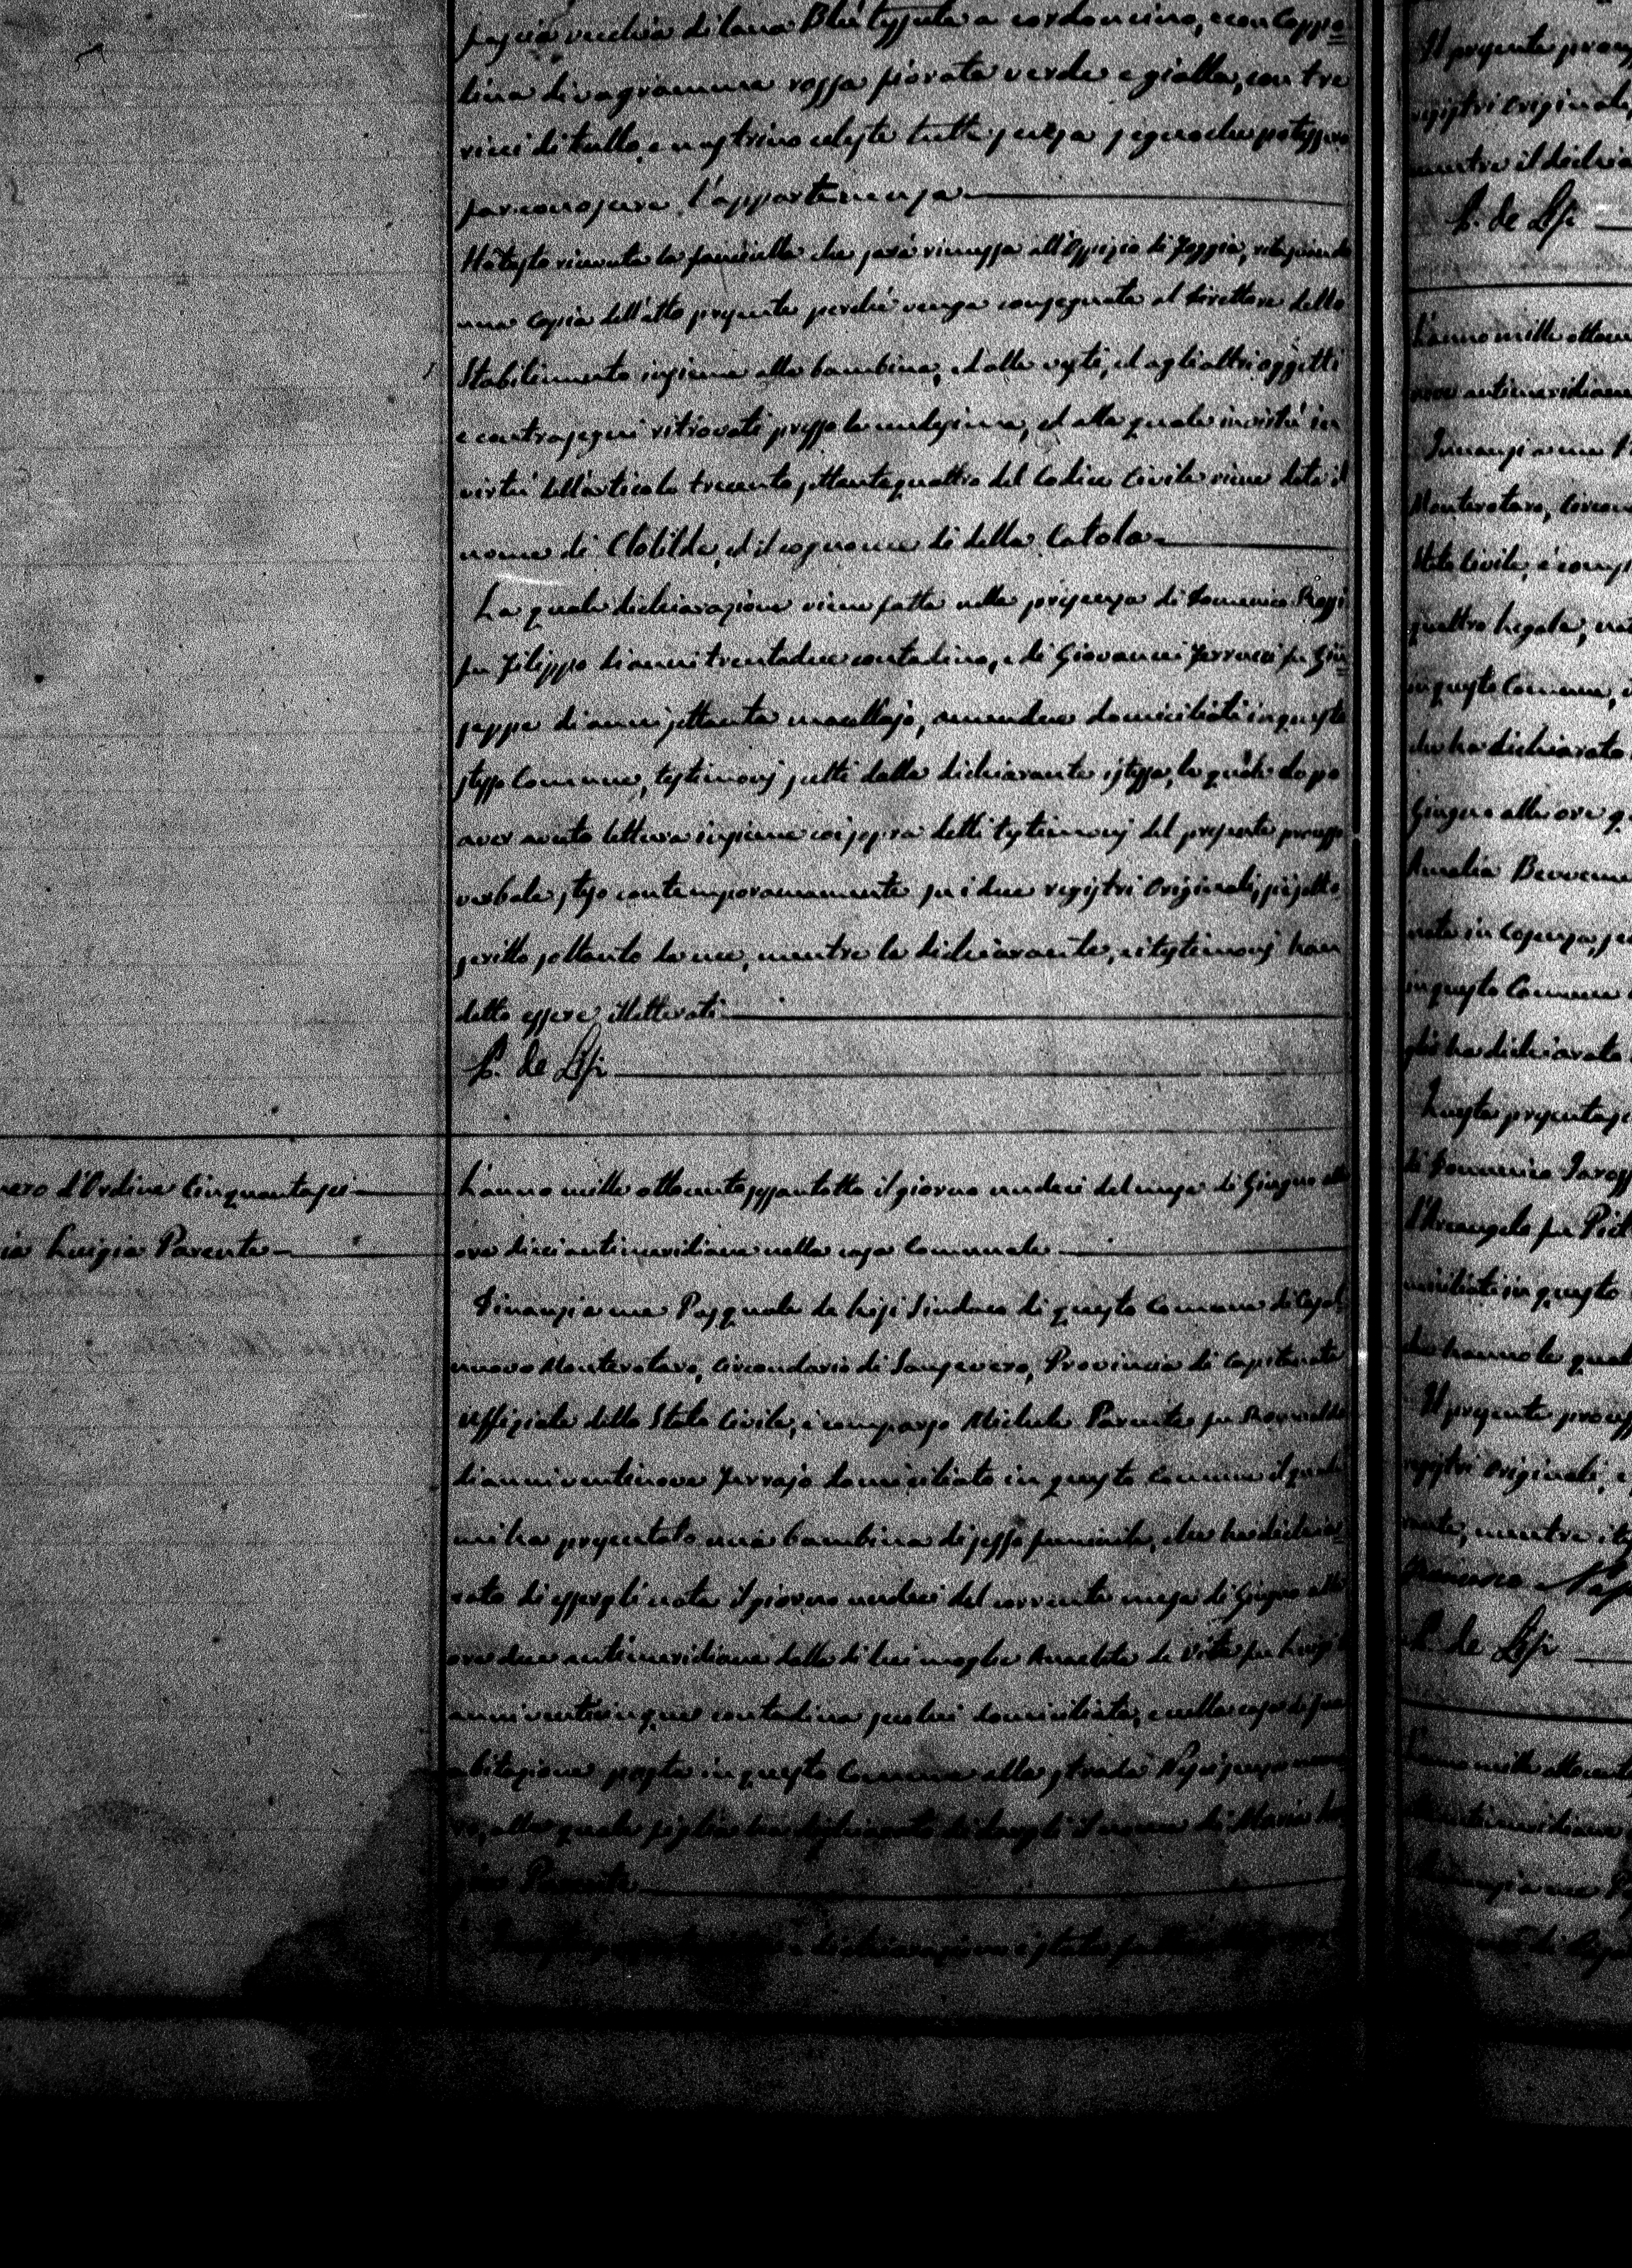 fascia vecchia di lana Blù tessuta a cordoncino, e con Coppo=
lina di vagramma rossa fiorata verde e gialla, con tre
ricci di tullo, e nastrino celeste tutto senza segno che potesse
far conoscere l'appartenenza
Ho testo rinvenuta la fanciulla che sarà rimessa all'Ospizio di Foggia, rilasciando
una copia dell'atto presente perché venga consegnata al Direttore dello
Stabilimento insieme alla bambina, ed alle vesti, ed agli altri oggetti
e contrasegni ritrovati presso la medesima, ed alla quale in virtù in
virtù dell'articolo trecento settantaquattro del Codice Civile viene dato il
nome di Clotilde, ed il cognome di della Catola
La quale dichiarazione viene fatta nella presenza di Domenico Rossi
fu Filippo di anni trentadue contadino, e di Giovanni Ferrucci fu Giu=
seppe di anni settanta macellajo, amendue domiciliati in questo
stesso Comune, testimonj scelti dalla dichiarante istessa, la quale dopo
aver avuto lettura insieme coi sopra detti testimonj del presente processo
verbale steso contemporaneamente su i due registri originali, si è sotto
scritto soltanto da me, mentre la dichiarante, e i testimonj han
detto essere illetterati
P. de Lisi
mero d'Ordine Cinquantasei
ia Luigia Parente
L'anno mille ottocento sessantotto il giorno undeci del mese di Giugno alle
ore dieci antimeridiane nella casa Comunale
Dinanzi a me Pasquale de Lisi Sindaco di questo Comune di Casal=
nuovo Monterotaro, Circondario di Sansevero, Provincia di Capitanata
Uffiziale dello Stato Civile, è comparso Michele Parente fu Romualdo
di anni ventinove Ferrajo domiciliato in questo Comune il quale
mi ha presentato una bambina di sesso feminile, che ha dichia=
rato di essergli nata il giorno undeci del corrente mese di Giugno alle
ore due antimeridiane dalla di lui moglie Anacleta de Vita fu Luigi di
anni venticinque contadina seco lui domiciliata, e nella casa di sua
abitazione posta in questo Comune alla strada
alla quale figlia ha dichiarato di dargli il nome di Maria Lui
gia Parente
e dichiarazione è stata fatta
Il presente process
registri originali,
mentre il dichia
P. de Lisi
L'anno mille ottocen
nove antimeridiane
Innanzi a me P
Monterotaro, Circon
Stato Civile, è comp
quattro legale,
in questo Comune,
che ha dichiarato
Giugno alle ore q
Amalia Benvenu
nata in Cosenza,
in questo Comune
più ha dichiarato
Questa presentaz
di Domenico Iaross
d'Arcangelo fu Piet
miciliati in questo
Il presente process
registri originali,
rante, mentre i tes
P. de Lisi
L'anno mille ottocento
antimeridiane
Innanzi a me Pa